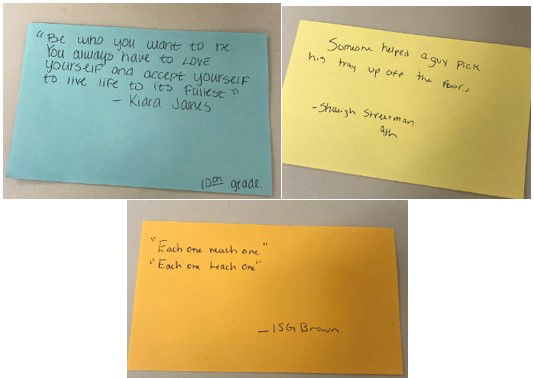 "Be who you want to be
You always have to LOVE
yourself and accept yourself
to live life to its fullest"
- Kiara Janes
10th grade.
Someone helped a guy pick
his tray up off the floor.
Streetman
9th
"Each one reach one"
"Each one teach one"
- 1SG Brown